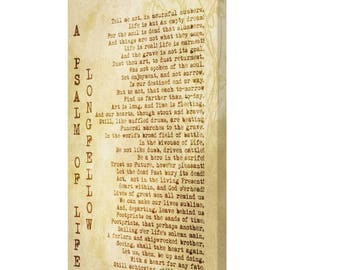 A PSALM OF LIFE
LONGFELLOW
Tell me not, in mournful numbers,
Life is but an empty dream!
For the soul is dead that slumbers,
And things are not what they seem.
Life is real! Life is earnest!
And the grave is not its goal;
Dust thou art, to dust returnest,
Was not spoken of the soul.
Not enjoyment, and not sorrow,
Is our destined end or way;
But to act, that each to-morrow
Find us farther than to-day.
Art is long, and Time is fleeting,
And our hearts, though stout and brave,
Still, like muffled drums, are beating
Funeral marches to the grave.
In the world's broad field of battle,
In the bivouac of Life,
Be not like dumb, driven cattle!
Be a hero in the strife!
Trust no Future, howe'er pleasant!
Let the dead Past bury its dead!
Act, act in the living Present!
Heart within, and God o'erhead!
Lives of great men all remind us
We can make our lives sublime,
And, departing, leave behind us
Footprints on the sands of time;
Footprints, that perhaps another,
Sailing o'er life's solemn main,
A forlorn and shipwrecked brother,
Seeing, shall take heart again.
Let us, then, be up and doing,
With a heart for any fate;
Still achieving, still